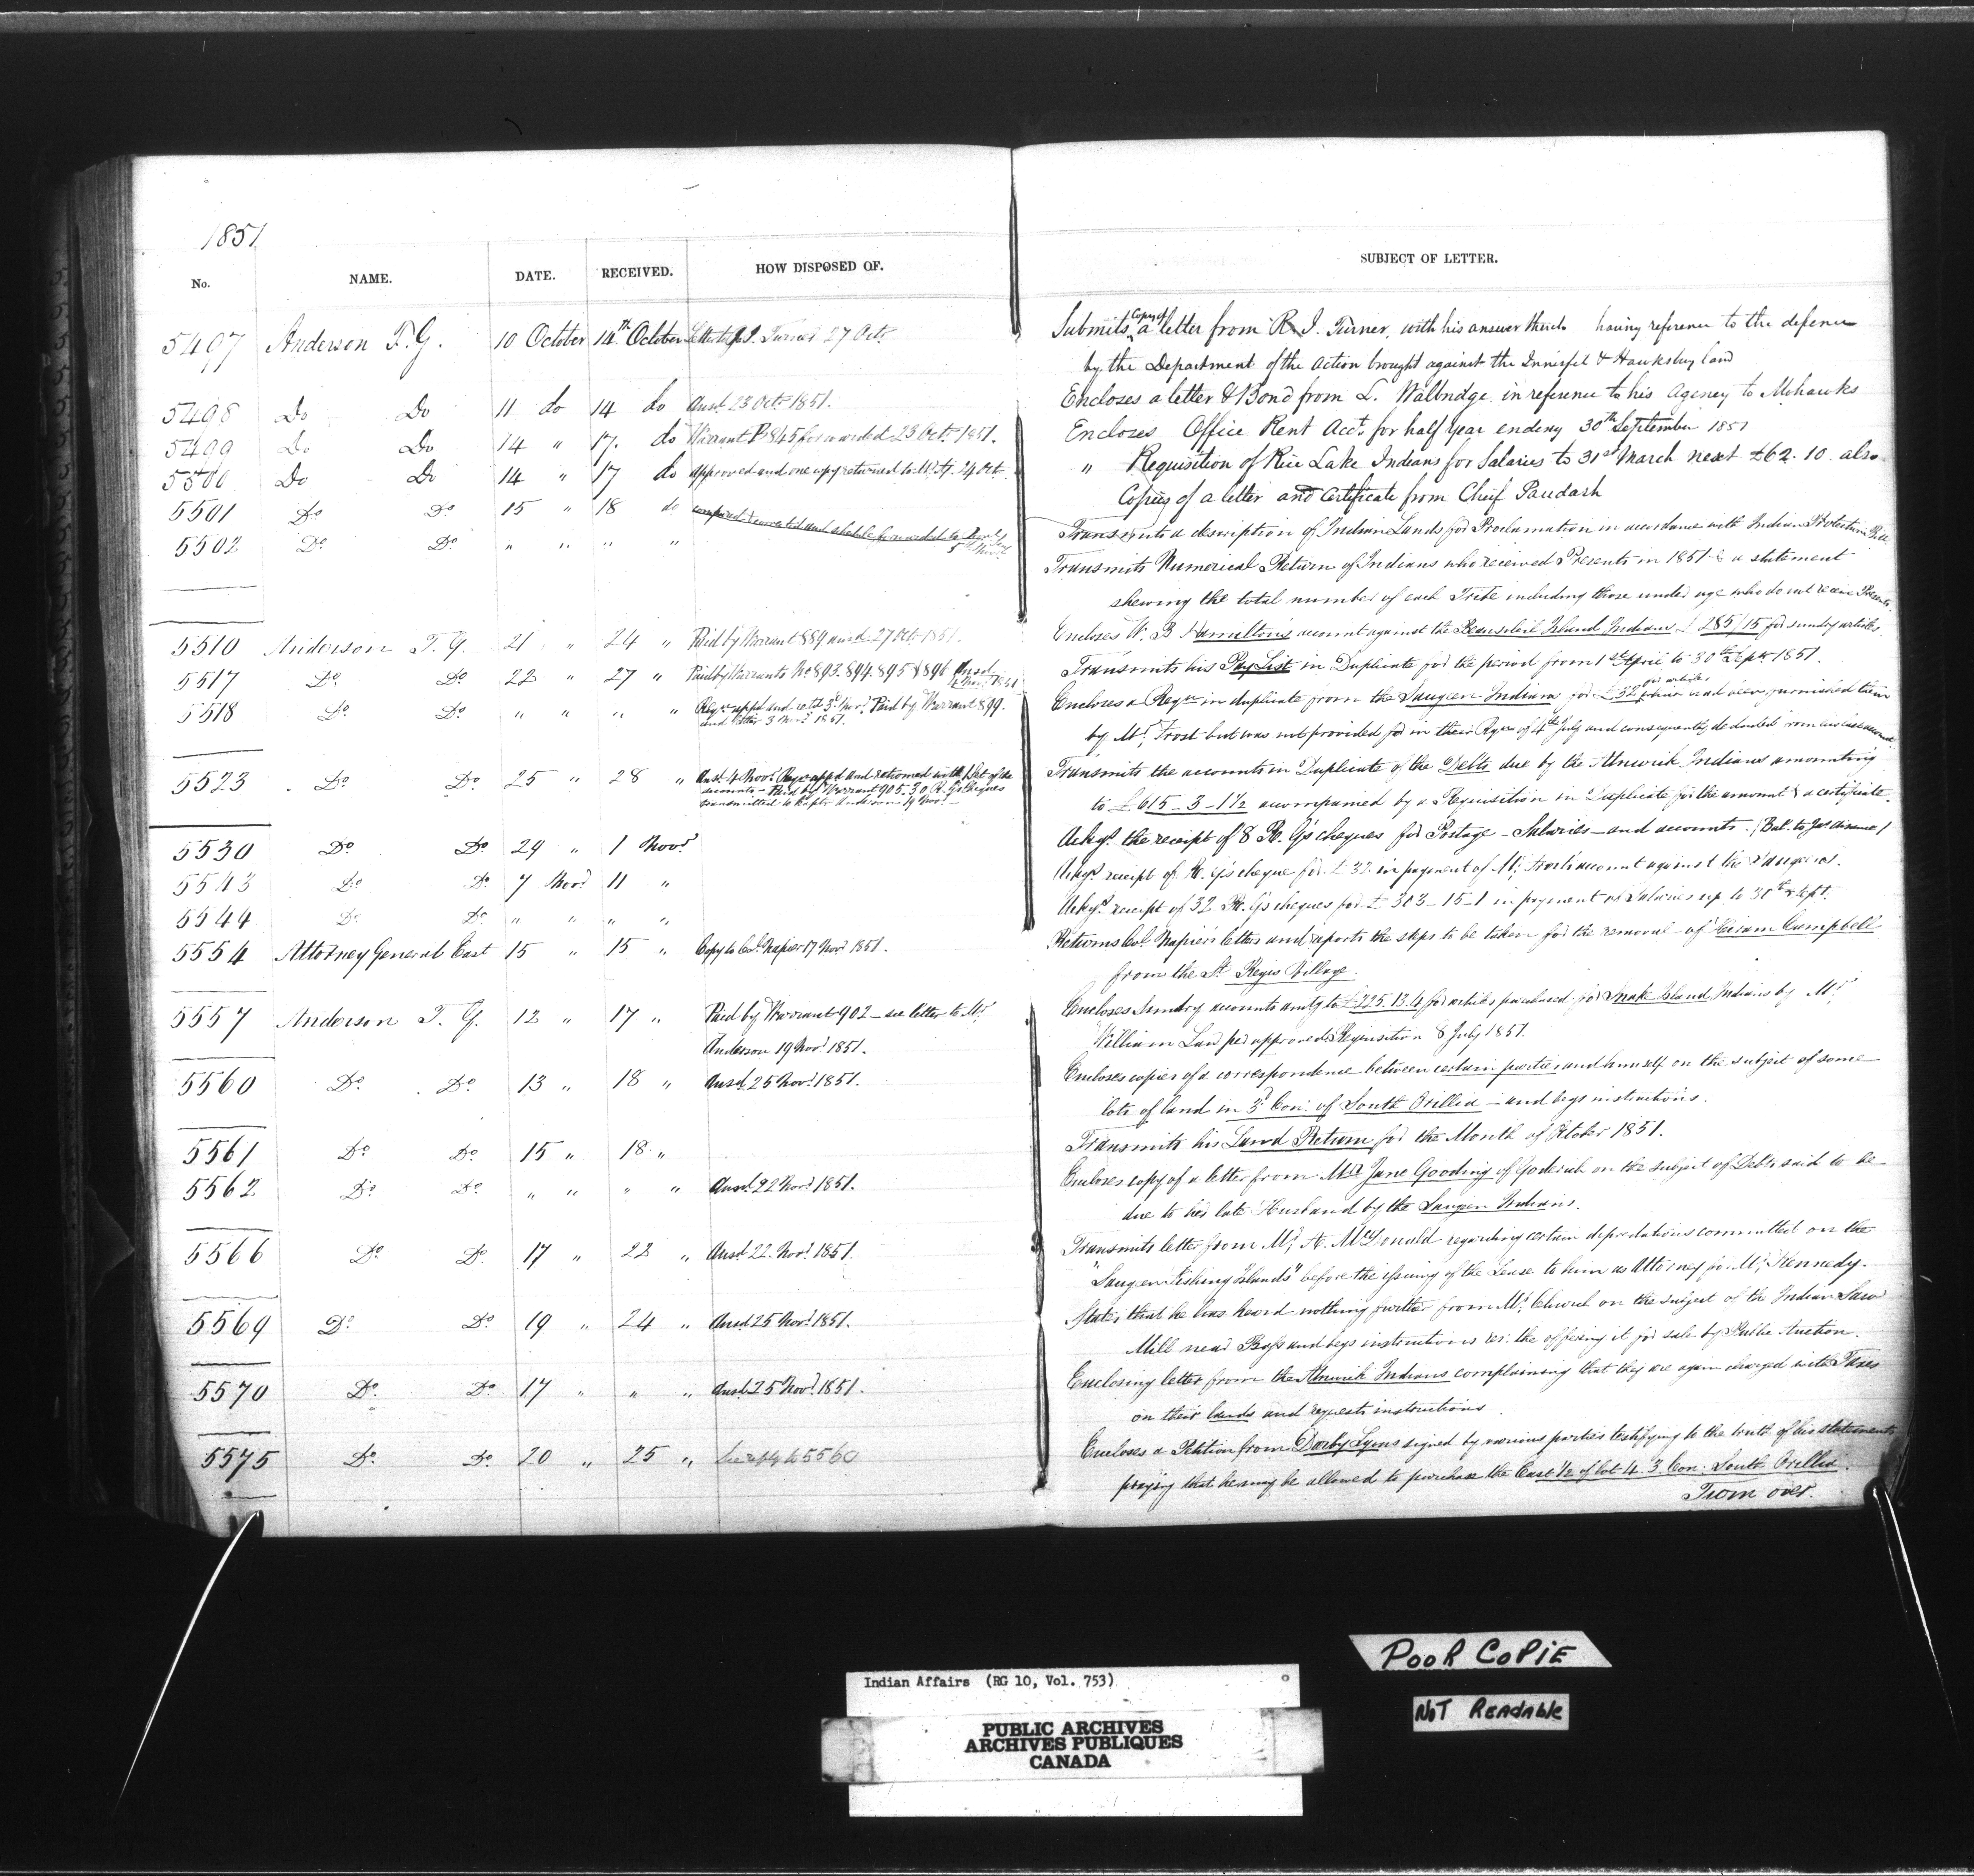 1851
No. NAME. DATE. RECEIVED. HOW DISPOSED OF. SUBJECT OF LETTER.
5497 Anderson T. G. 10 October 14th October Letter to R. J. Turner 27 Octr. Submits Copy of a letter from R. J. Turner, with his answer thereto having reference to the defence
by the Department of the action brought against the Innisfil & Hawksbury land
5498 Do Do 11 do 14 do Ansd. 23 Octr. 1851. Encloses a letter & Bond from L. Walbridge in reference to his agency to Mohawks
5499 Do Do 14 " 17. do Warrant B 845 forwarded 23 Octr. 1851. Encloses Office Rent Acct. for half year ending 30th September 1851
5500 Do Do 14 " 17 do approved and one copy returned to 24 Oct. " Requisition of Rice Lake Indians for Salaries to 31st March next £62. 10. also
Copies of a letter and Certificate from Chief Paudash
5501 Do Do 15 " 18 do compared corrected and schedule forwarded to Transmits a description of Indian Lands for Proclamation in accordance with Indian Protection Bill
5502 Do Do " " " " 5 Transmits Numerical Return of Indians who received Presents in 1851 & a statement
shewing the total number of each Tribe including those under age who do not receive Presents.
5510 Anderson T. G. 21 " 24 " Paid by Warrant 889 ansd. 27 Octr. 1851. Encloses W. B. Hamilton's account against the Beausoleil Island Indians £285/15 for sundry articles.
5517 Do Do 22 " 27 " Paid by Warrants No 893. 894. 895 & 896 Ansd Novr. 1851 Transmits his Pay List in Duplicate for the period from 1st April to 30th Septr. 1851.
5518 Do Do " " " " Reqn. appd. and retd. 3d Novr. Paid by Warrant 899.
and letter 3 Novr. 1851. Encloses a Reqn. in duplicate from the Saugeen Indians for £32 for articles furnished them
by Mr. Frost but was not provided for in their Reqn. of 4th July and consequently deducted
5523 Do Do 25 " 28 " Ansd. 4 Novr. Reqn. appd. and returned with 1 Set of the
accounts - Paid by Warrant 905. 30 R. G's Cheques
transmitted to Captn. Anderson 19 Novr. Transmits the accounts in Duplicate of the Debts due by the Alnwick Indians amounting
to £615 - 3 - 1½ accompanied by a Requisition in Duplicate for the amount & a certificate.
5530 Do Do 29 " 1 Novr. Ackgs. the receipt of 8 R. G's cheques for Postage - Salaries - and accounts.
5543 Do Do 7 Novr. 11 " Ackgs. receipt of R. G's cheque for £32 in payment of Mr. Frost's account against the Saugeens.
5544 Do Do " " " " Ackgs. receipt of 32 R. G's cheques for £303 - 15 - 1 in payment of Salaries up to 30th Sept.
5554 Attorney General East 15 " 15 " Copy to Col. Napier 17 Novr. 1851. Returns Col. Napier's letters and reports the steps to be taken for the removal of Hiram Campbell
from the St. Regis Village.
5557 Anderson T. G. 12 " 17 " Paid by Warrant 902 - see letter to Mr.
Anderson 19 Novr. 1851. Encloses Sundry accounts amtg. to £225. 13. 4 for articles purchased for Snake Island Indians by Mr.
William Law per approved Requisition 8 July 1851.
5560 Do Do 13 " 18 " Ansd. 25 Novr. 1851. Encloses copies of a correspondence between certain parties and himself on the subject of some
lots of land in 3d Con. of South Orillia - and begs instructions.
5561 Do Do 15 " 18 " Transmits his Land Return for the Month of October 1851.
5562 Do Do " " " " Ansd. 22 Novr. 1851. Encloses copy of a letter from Mrs. Jane Gooding of Goderich on the subject of Debts said to be
due to her late Husband by the Saugeen Indians.
5566 Do Do 17 " 22 " Ansd. 22. Novr. 1851. Transmits letter from Mr. A. McDonald regarding certain depredations committed on the
"Saugeen Fishing Islands" before the issuing of the Lease to him as Attorney for Mr. Kennedy.
5569 Do Do 19 " 24 " Ansd. 25 Novr. 1851. States that he has heard nothing further from Mr. Church on the subject of the Indian Saw
Mill near and begs instructions re: the offering it for sale by Public Auction.
5570 Do Do 17 " " " Ansd. 25 Novr. 1851. Enclosing letter from the Alnwick Indians complaining that they are again charged with Taxes
on their lands and requests instructions.
5575 Do Do 20 " 25 " See reply to 5560 Encloses a Petition from Darby Lyons signed by various parties testifying to the truth of his statements
praying that he may be allowed to purchase the East ½ of lot 4. 3. Con: South Orillia.
Turn over.
Indian Affairs (RG 10, Vol. 753)
PUBLIC ARCHIVES
ARCHIVES PUBLIQUES
CANADA
POOR COPIE
NOT Readable